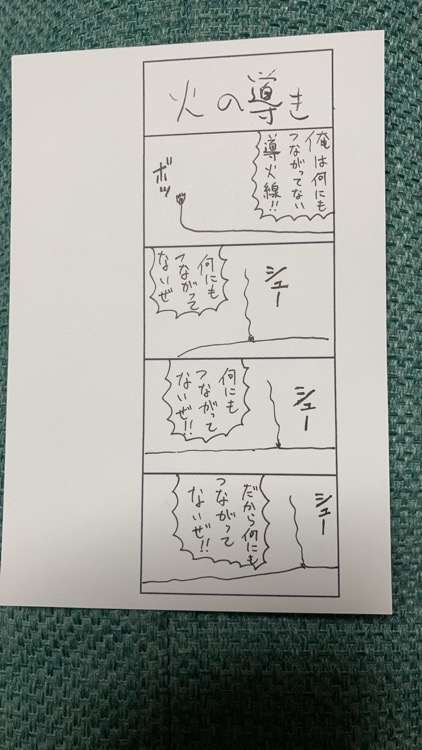 火の導き
俺は何にも
つながってない
導火線!!
ボッ
シュー
何にも
つながって
ないぜ
シュー
何にも
つながって
ないぜ!!
シュー
だから何にも
つながって
ないぜ!!